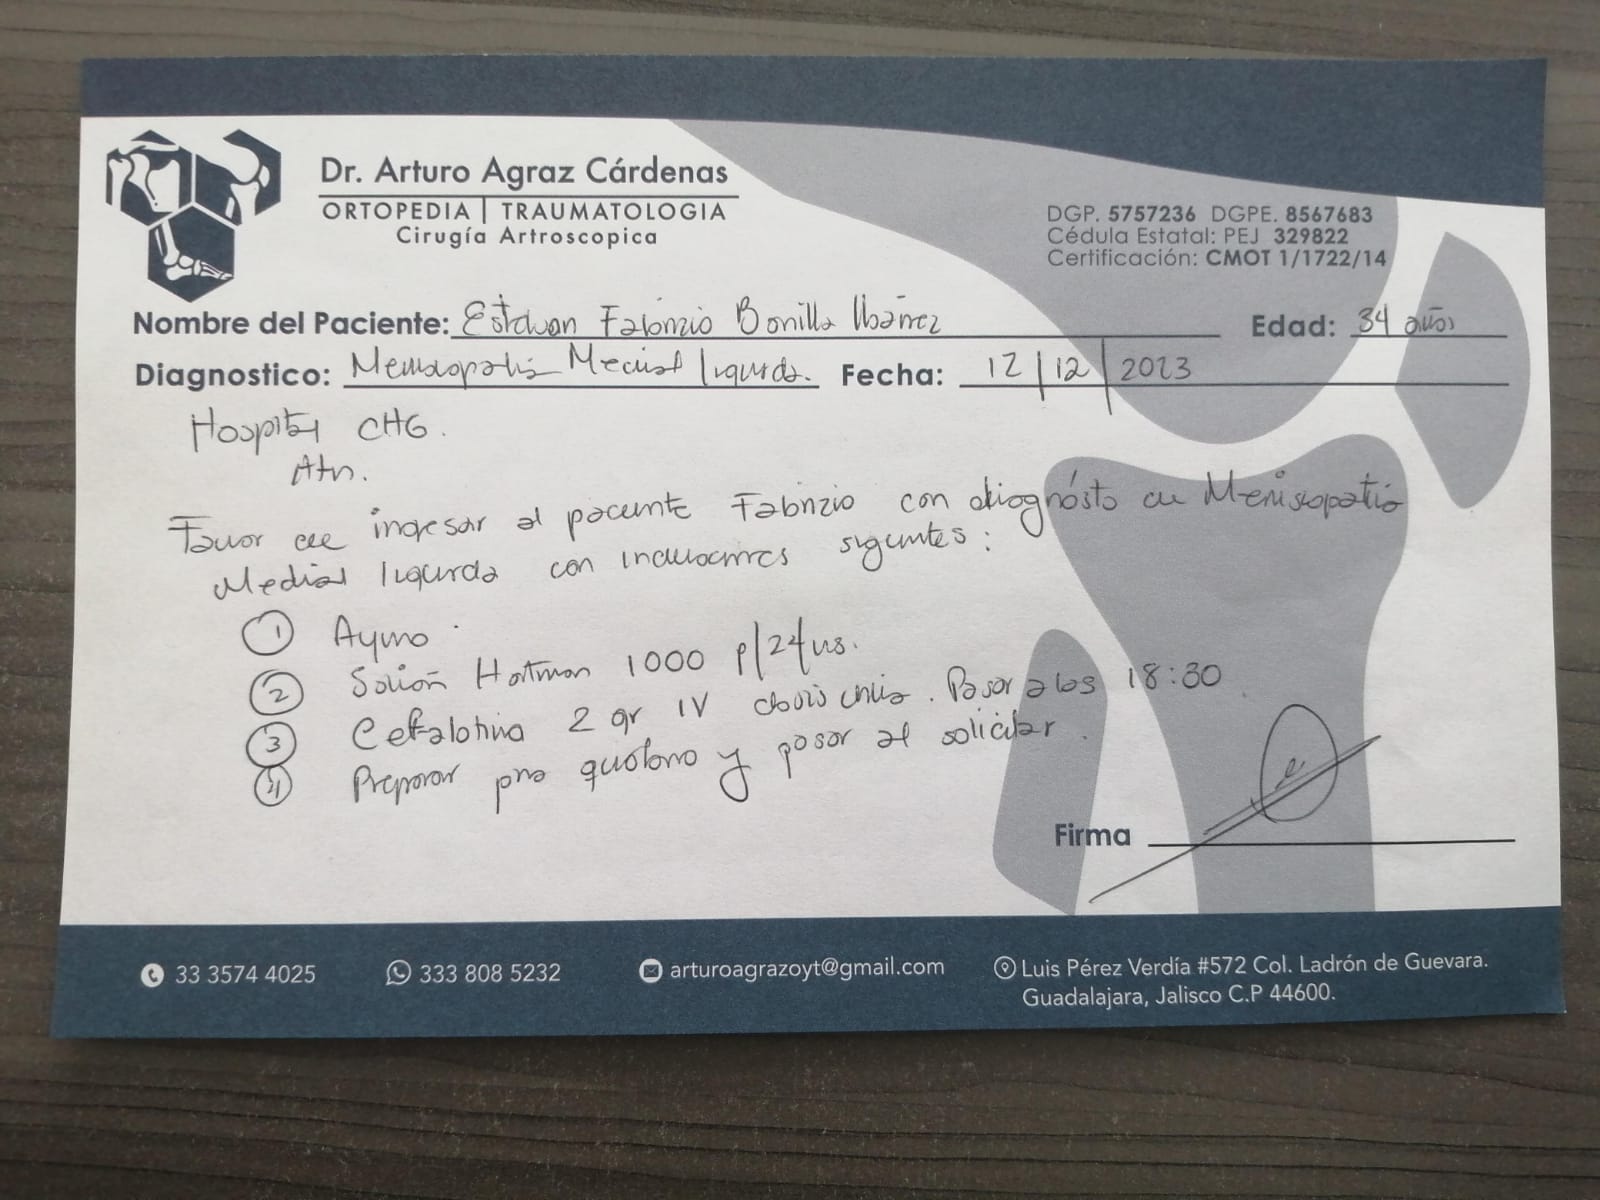 Dr. Arturo Agraz Cárdenas
ORTOPEDIA | TRAUMATOLOGIA
Cirugía Artroscopica
DGP. 5757236 DGPE. 8567683
Cédula Estatal: PEJ 329822
Certificación: CMOT 1/1722/14
Nombre del Paciente: Estevan Fabrizio Bonilla Ibáñez Edad: 34 años
Diagnostico: Meniscopatia Medial Izquierda. Fecha: 12/12/2023
Hospital CHG.
Atn.
Favor de ingresar al paciente Fabrizio con diagnósto de Meniscopatia
Medial Izquierda con indicaciones siguientes:
1 Ayuno
2 Solución Hartman 1000 p/24hrs.
3 Cefalotina 2 gr IV dosis única. Pasar a las 18:30
4 Preparar para quirofano y pasar al solicitar.
Firma
33 3574 4025
333 808 5232
arturoagrazoyt@gmail.com
Luis Pérez Verdía #572 Col. Ladrón de Guevara.
Guadalajara, Jalisco C.P 44600.